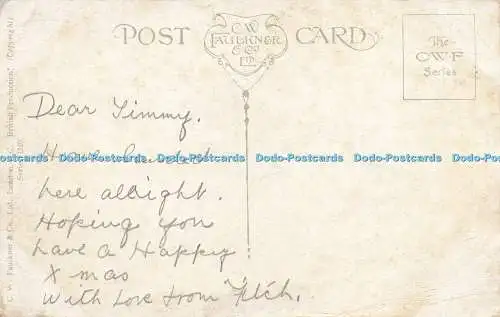 POST CARD
C.W.
FAULKNER
& Co
LTD
The
C.W.F
Series
Dear Timmy.
Have landed
here allright.
Hoping you
have a Happy
X mas
With Love from
C. W. Faulkner & Co., Ltd., London, E.C. British Production. Copyright
Series
Dodo-Postcards Dodo-Postcards Dodo-Postcards Dodo-Postcards Dodo-Postcards